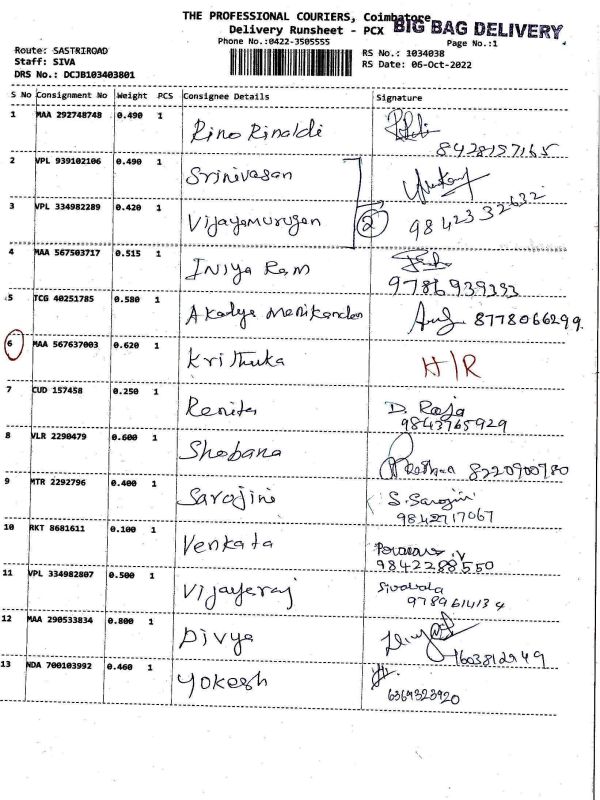 THE PROFESSIONAL COURIERS, Coimbatore
Delivery Runsheet - PCX BIG BAG DELIVERY
Phone No.:0422-3505555 Page No.:1
Route: SASTRIROAD RS No.: 1034038
Staff: SIVA RS Date: 06-Oct-2022
DRS No.: DCJB103403801
S No Consignment No Weight PCS Consignee Details Signature
1 MAA 292748748 0.490 1 Rino Rinaldi 8428157165
2 VPL 939102106 0.490 1 Srinivasan
3 VPL 334982289 0.420 1 Vijayamurugan 2 9842332632
4 MAA 567503717 0.515 1 Iniya Ram 9786939393
5 TCG 40251785 0.580 1 Akalya Manikandan 8778066299.
6 MAA 567637003 0.620 1 Krithika H/R
7 CUD 157458 0.250 1 Renita D. Raja
9843765929
8 VLR 2290479 0.600 1 Shobana 8220900980
9 MTR 2292796 0.400 1 Sarojini S. Sarojini
9842717067
10 RKT 8681611 0.100 1 Venkata
9842288550
11 VPL 334982807 0.500 1 Vijayaraj Sivabala
9789614134
12 MAA 290533834 0.800 1 Divya
13 NDA 700103992 0.460 1 Yokesh
6369323920